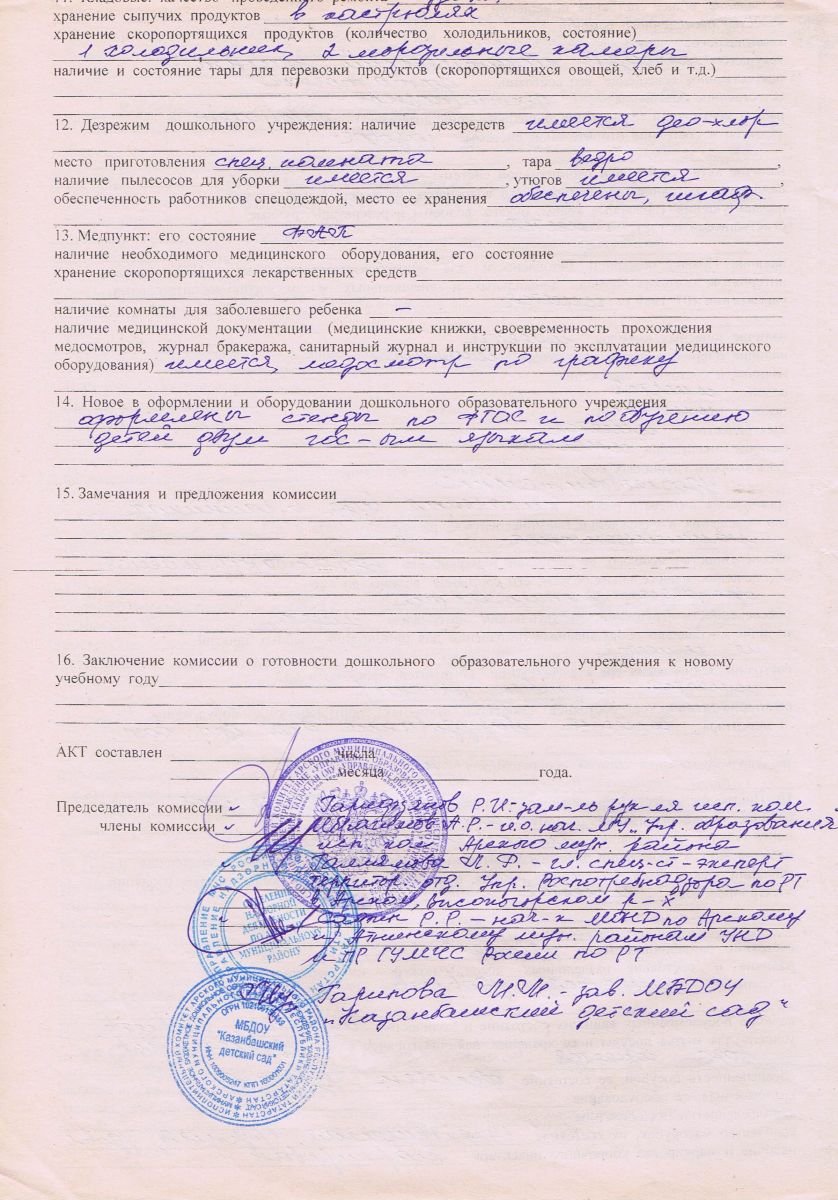 11. Кладовые: качество проведенного ремонта
хранение сыпучих продуктов в кастрюлях
хранение скоропортящихся продуктов (количество холодильников, состояние)
1 холодильник, 2 морозильные камеры
наличие и состояние тары для перевозки продуктов (скоропортящихся овощей, хлеб и т.д.)
12. Дезрежим дошкольного учреждения: наличие дезсредств имеется део-хлор
место приготовления спец. комната, тара ведро,
наличие пылесосов для уборки имеется, утюгов имеется
обеспеченность работников спецодеждой, место ее хранения обеспечены, шкаф.
13. Медпункт: его состояние ФАП
наличие необходимого медицинского оборудования, его состояние
хранение скоропортящихся лекарственных средств
наличие комнаты для заболевшего ребенка –
наличие медицинской документации (медицинские книжки, своевременность прохождения
медосмотров, журнал бракеража, санитарный журнал и инструкции по эксплуатации медицинского
оборудования) имеется, медосмотр по графику
14. Новое в оформлении и оборудовании дошкольного образовательного учреждения
оформлены стенды по ФГОС и по обучению
детей двум гос-ым языкам
15. Замечания и предложения комиссии
16. Заключение комиссии о готовности дошкольного образовательного учреждения к новому
учебному году
АКТ составлен числа
месяца года.
Председатель комиссии Р.И. - зам-ль рук-ля исп. ком.
члены комиссии Ибрагимов А.Р. - и.о. нач. МУ "Упр. образования"
исп. ком. Арского мун. района
Ф. - гл. спец-ст - эксперт
территор. отд. Упр. Роспотребнадзора по РТ
в Арском, Высокогорском р-х
Р.Р. – нач-к МОНД по Арскому
и Атнинскому мун. районам УНД
и ПР ГУ МЧС России по РТ
Гарипова - зав. МБДОУ
"Казанбашский детский сад"
НАДЗОРНОЙ
ДЕЯТЕЛЬНОСТИ
МУНИЦИПАЛЬНОМУ
РАЙОНУ
МБДОУ
"Казанбашский
детский сад"